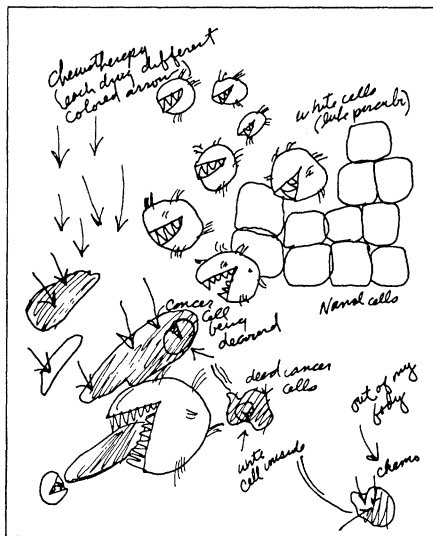 chemotherapy
(each drug different
colored arrow)
white cells
(like
Normal cells
cancer
cell
being
devoured
dead cancer
cells
white
cell inside
out of my
body
chemo